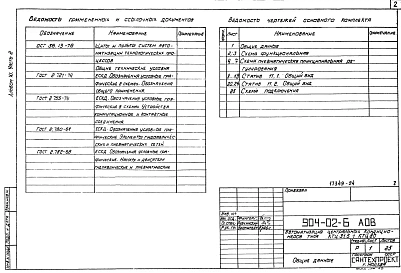 2
Ведомость примененных и ссылочных документов
Обозначение
Наименование
Примечание
ОСТ 36.13-76
Щиты и пульты систем авто-
матизации технологических про-
цессов
Общие технические условия
ГОСТ 2.721-74
ЕСКД. Обозначения условные гра-
фические в схемах. Обозначения
общего применения
ГОСТ 2.755-74
ЕСКД. Обозначения условные гра-
фические в схемах. Устройства
коммутационные и контактные
соединения
ГОСТ 2.780-68
ЕСКД. Обозначения условные гра-
фические. Элементы гидравличес-
ких и пневматических сетей
ГОСТ 2.782-68
ЕСКД. Обозначения условные гра-
фические. Насосы и двигатели
гидравлические и пневматические
Ведомость чертежей основного комплекта
Лист
Наименование
Примечание
1
Общие данные
2,3
Схема функциональная
Схема пневматическая принципиальная ре-
гулирования
Статив П.1. Общий вид
Статив П.2. Общий вид
Схема подключения
17349-04
2
Привязан
904-02-6 АОВ
Автоматизация центральных кондицио-
неров типа КТЦ 31,5 и КТЦ 80
Р
1
25
Общие данные
САНТЕХПРОЕКТ